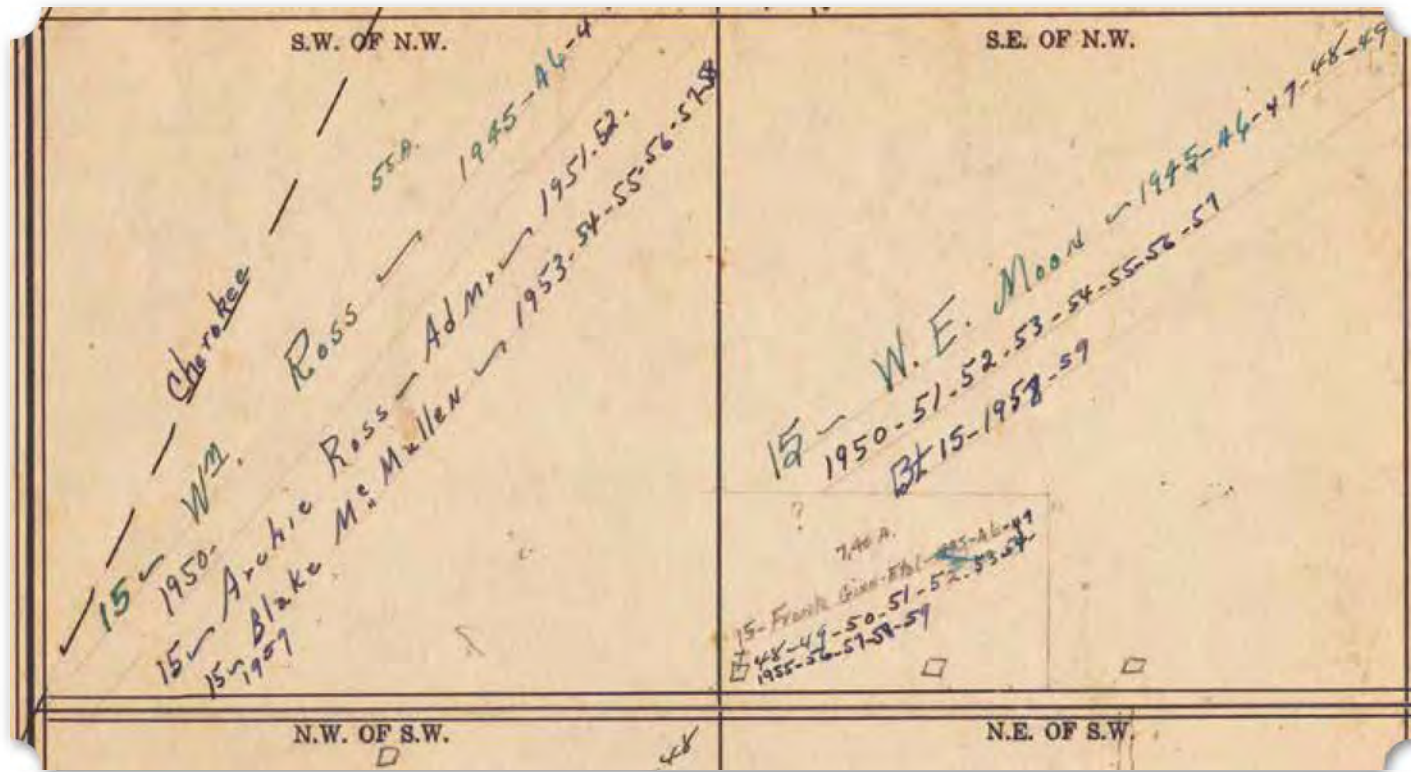 S.W. OF N.W.
Cherokee
55A.
15 - Wm. Ross - 1945-46-4
1950-
15 - Archie Ross - Admr - 1951.52.
15 - Blake McMullen - 1953-54-55-56-57-58
1959
S.E. OF N.W.
15 - W. E. Moon - 1945-46-47-48-49
1950-51-52-53-54-55-56-57
15-1958-59
?
7.40 A.
15- Frank Ginn 46-47
48-49-50-51-52-53-54-
1955-56-57-58-59
N.W. OF S.W.
48
N.E. OF S.W.